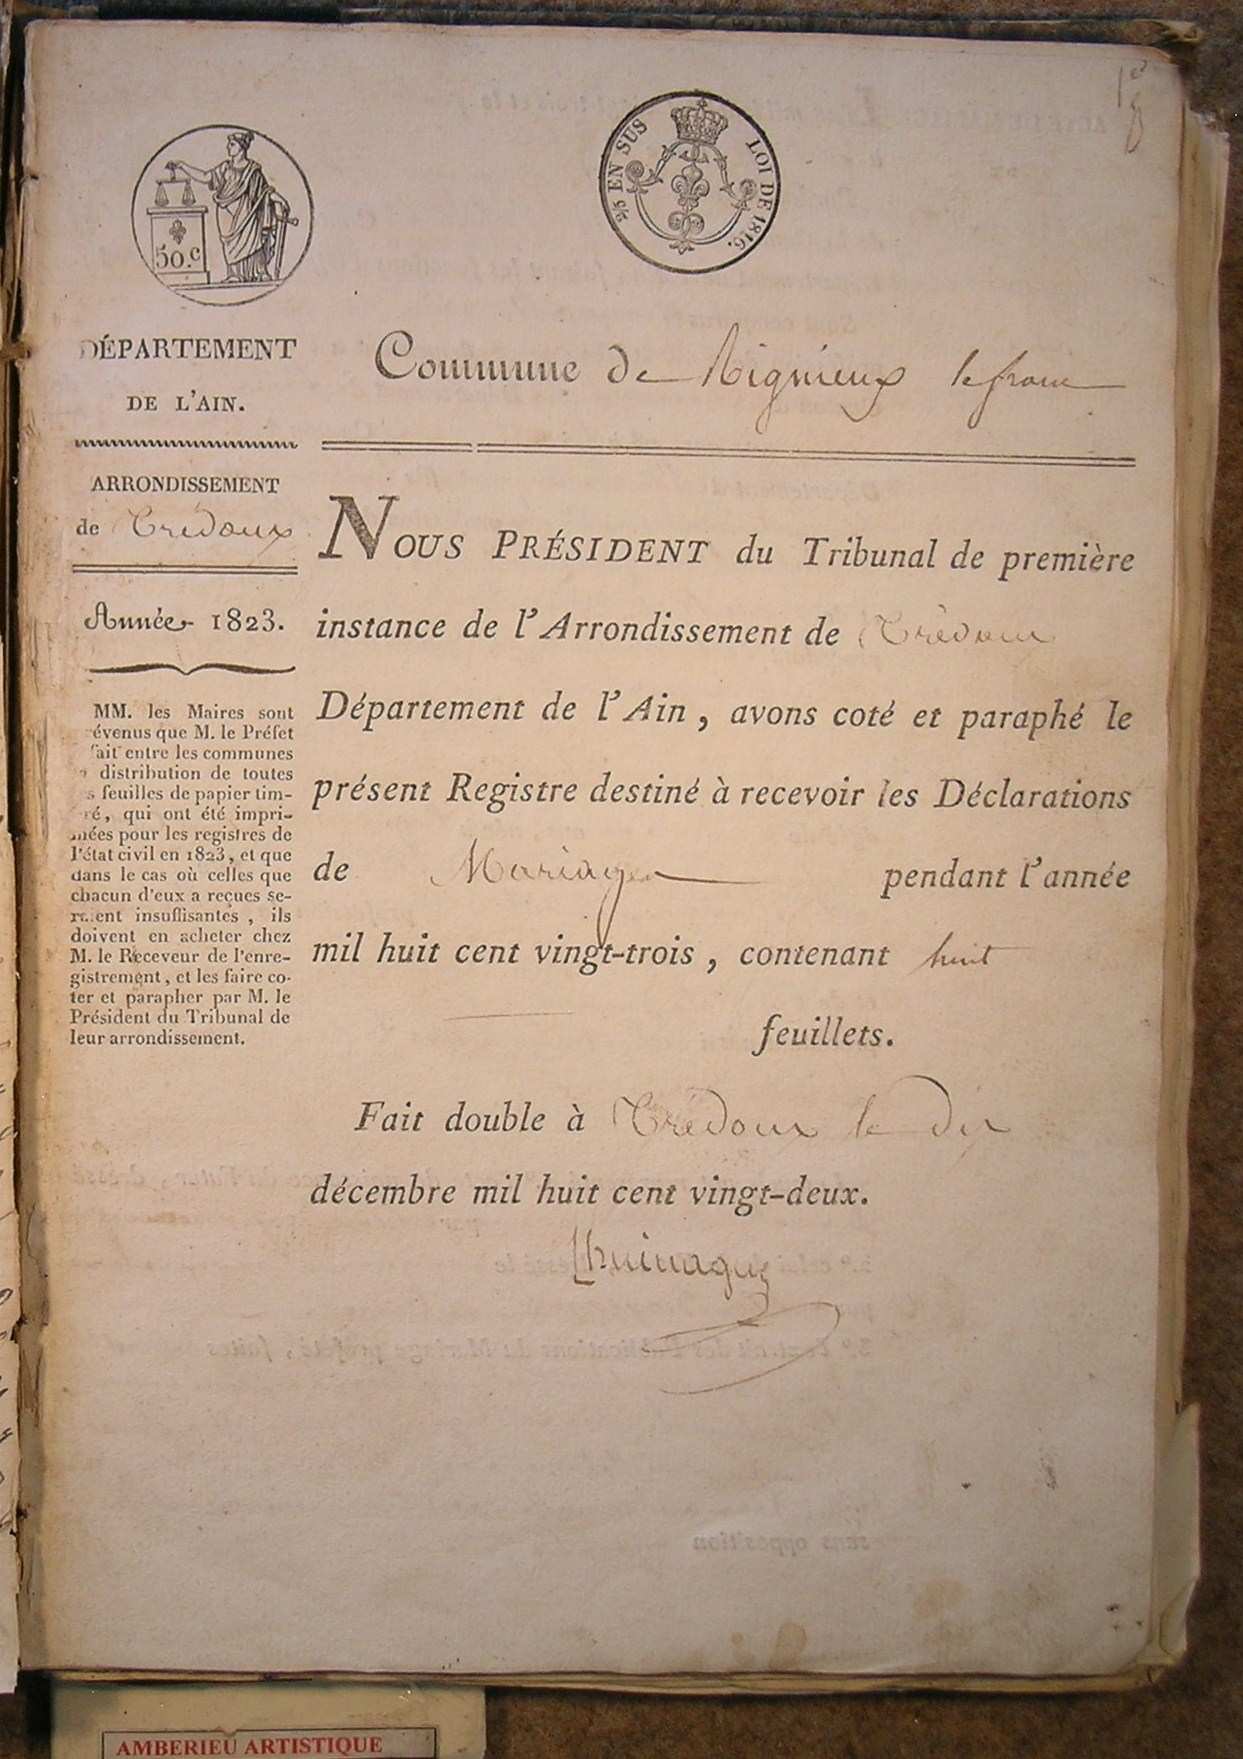 1er
8
2/5 EN SUS
LOI DE 1816.
50.c
DÉPARTEMENT
DE L'AIN.
Commune de Rignieux le franc
ARRONDISSEMENT
de Trédoux
Année 1823.
MM. les Maires sont
révenus que M. le Préfet
fait entre les communes
distribution de toutes
s feuilles de papier tim-
ré, qui ont été impri-
mées pour les registres de
l'état civil en 1823, et que
dans le cas où celles que
chacun d'eux a reçues se-
raient insuffisantes, ils
doivent en acheter chez
M. le Receveur de l'enre-
gistrement, et les faire co-
ter et parapher par M. le
Président du Tribunal de
leur arrondissement.
NOUS PRÉSIDENT du Tribunal de première
instance de l'Arrondissement de Trédoux
Département de l'Ain, avons coté et paraphé le
présent Registre destiné à recevoir les Déclarations
de Mariages pendant l'année
mil huit cent vingt-trois, contenant huit
feuillets.
Fait double à Trédoux le dix
décembre mil huit cent vingt-deux.
AMBERIEU ARTISTIQUE